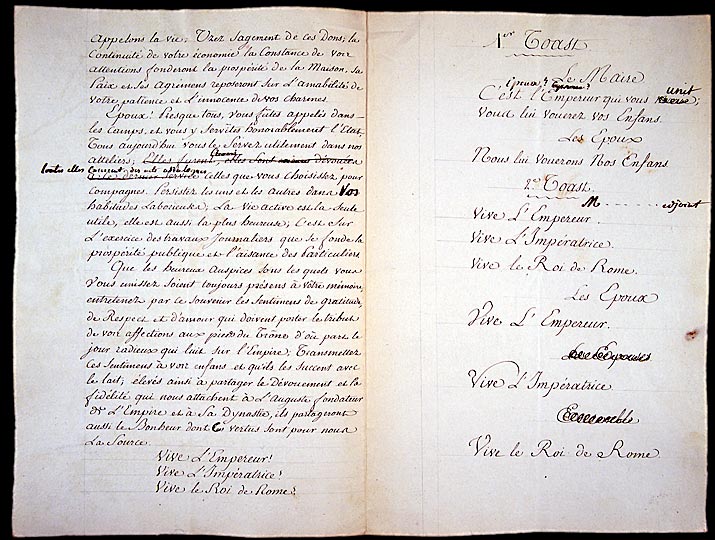 appelons la vie. Usez sagement de ces Dons; la
Continuité de votre économie la Constance de vos
attentions fonderont la prospérité de la Maison, sa
Paix et ses Agrémens reposeront sur l'amabilité de
votre patience et l'innocence de vos charmes.
Epoux! Presque tous, vous futes appelés dans
les Camps, et vous y Servîtes honorablement l'Etat,
Tous aujourdhui vous le Servez utilement dans nos
atteliers; Elles furent, elles sont
toutes elles
celles que vous Choisissiez pour
Compagnes. Persistez les uns et les autres dans Vos
habitudes Laborieuses; La vie active est la Seule
utile, elle est aussi la plus heureuse; C'est Sur
L'exercice des travaux journaliers que se fonde la
prospérité publique et l'aisance des particuliers.
Que les heureux auspices Sous les quels vous
Vous unissez Soient toujours présens à Votre mémoire,
entretenez par le souvenir les Sentimens de gratitude,
de Respect et d'amour qui doivent porter le tribut
de vos affections aux pieds du Trône d'où part le
jour radieux qui luit sur l'Empire; Transmettez
ces Sentimens à vos enfans et qu'ils les Sucent avec
le lait; élevés ainsi à partager le Dévouement et la
fidélité qui nous attachent à L'Auguste fondateur
de L'Empire et à Sa Dynastie, ils partageront
aussi le Bonheur dont Ces vertus sont pour nous
La Source.
Vive L'Empereur!
Vive L'Impératrice!
Vive le Roi de Rome!
1er Toast
Le Maire
C'est l'Empereur qui vous unit;
Vous lui vouerez vos Enfans.
Les Epoux
Nous lui Vouerons Nos Enfans
2e Toast
M. adjoint
Vive L'Empereur.
Vive L'Impératrice.
Vive le Roi de Rome.
Les Epoux
Vive L'Empereur.
Les Epouses
Vive L'Impératrice
Ensemble
Vive le Roi de Rome.